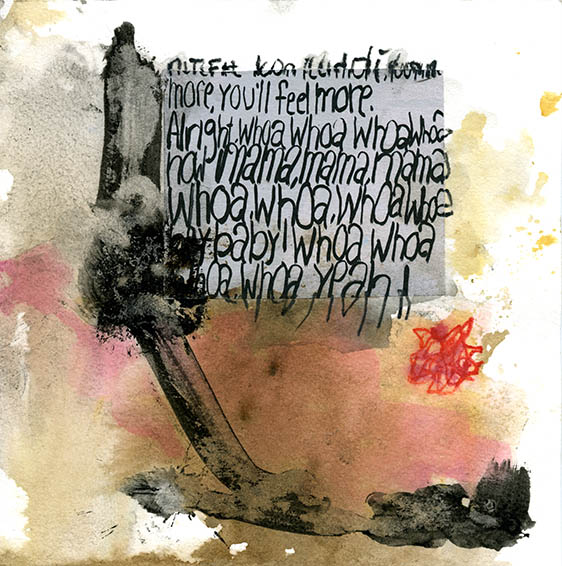 more, you'll feel more.
Alright, whoa whoa whoa whoa
now mama, mama, mama
whoa, whoa, whoa whoa
baby! whoa whoa
whoa yeah!